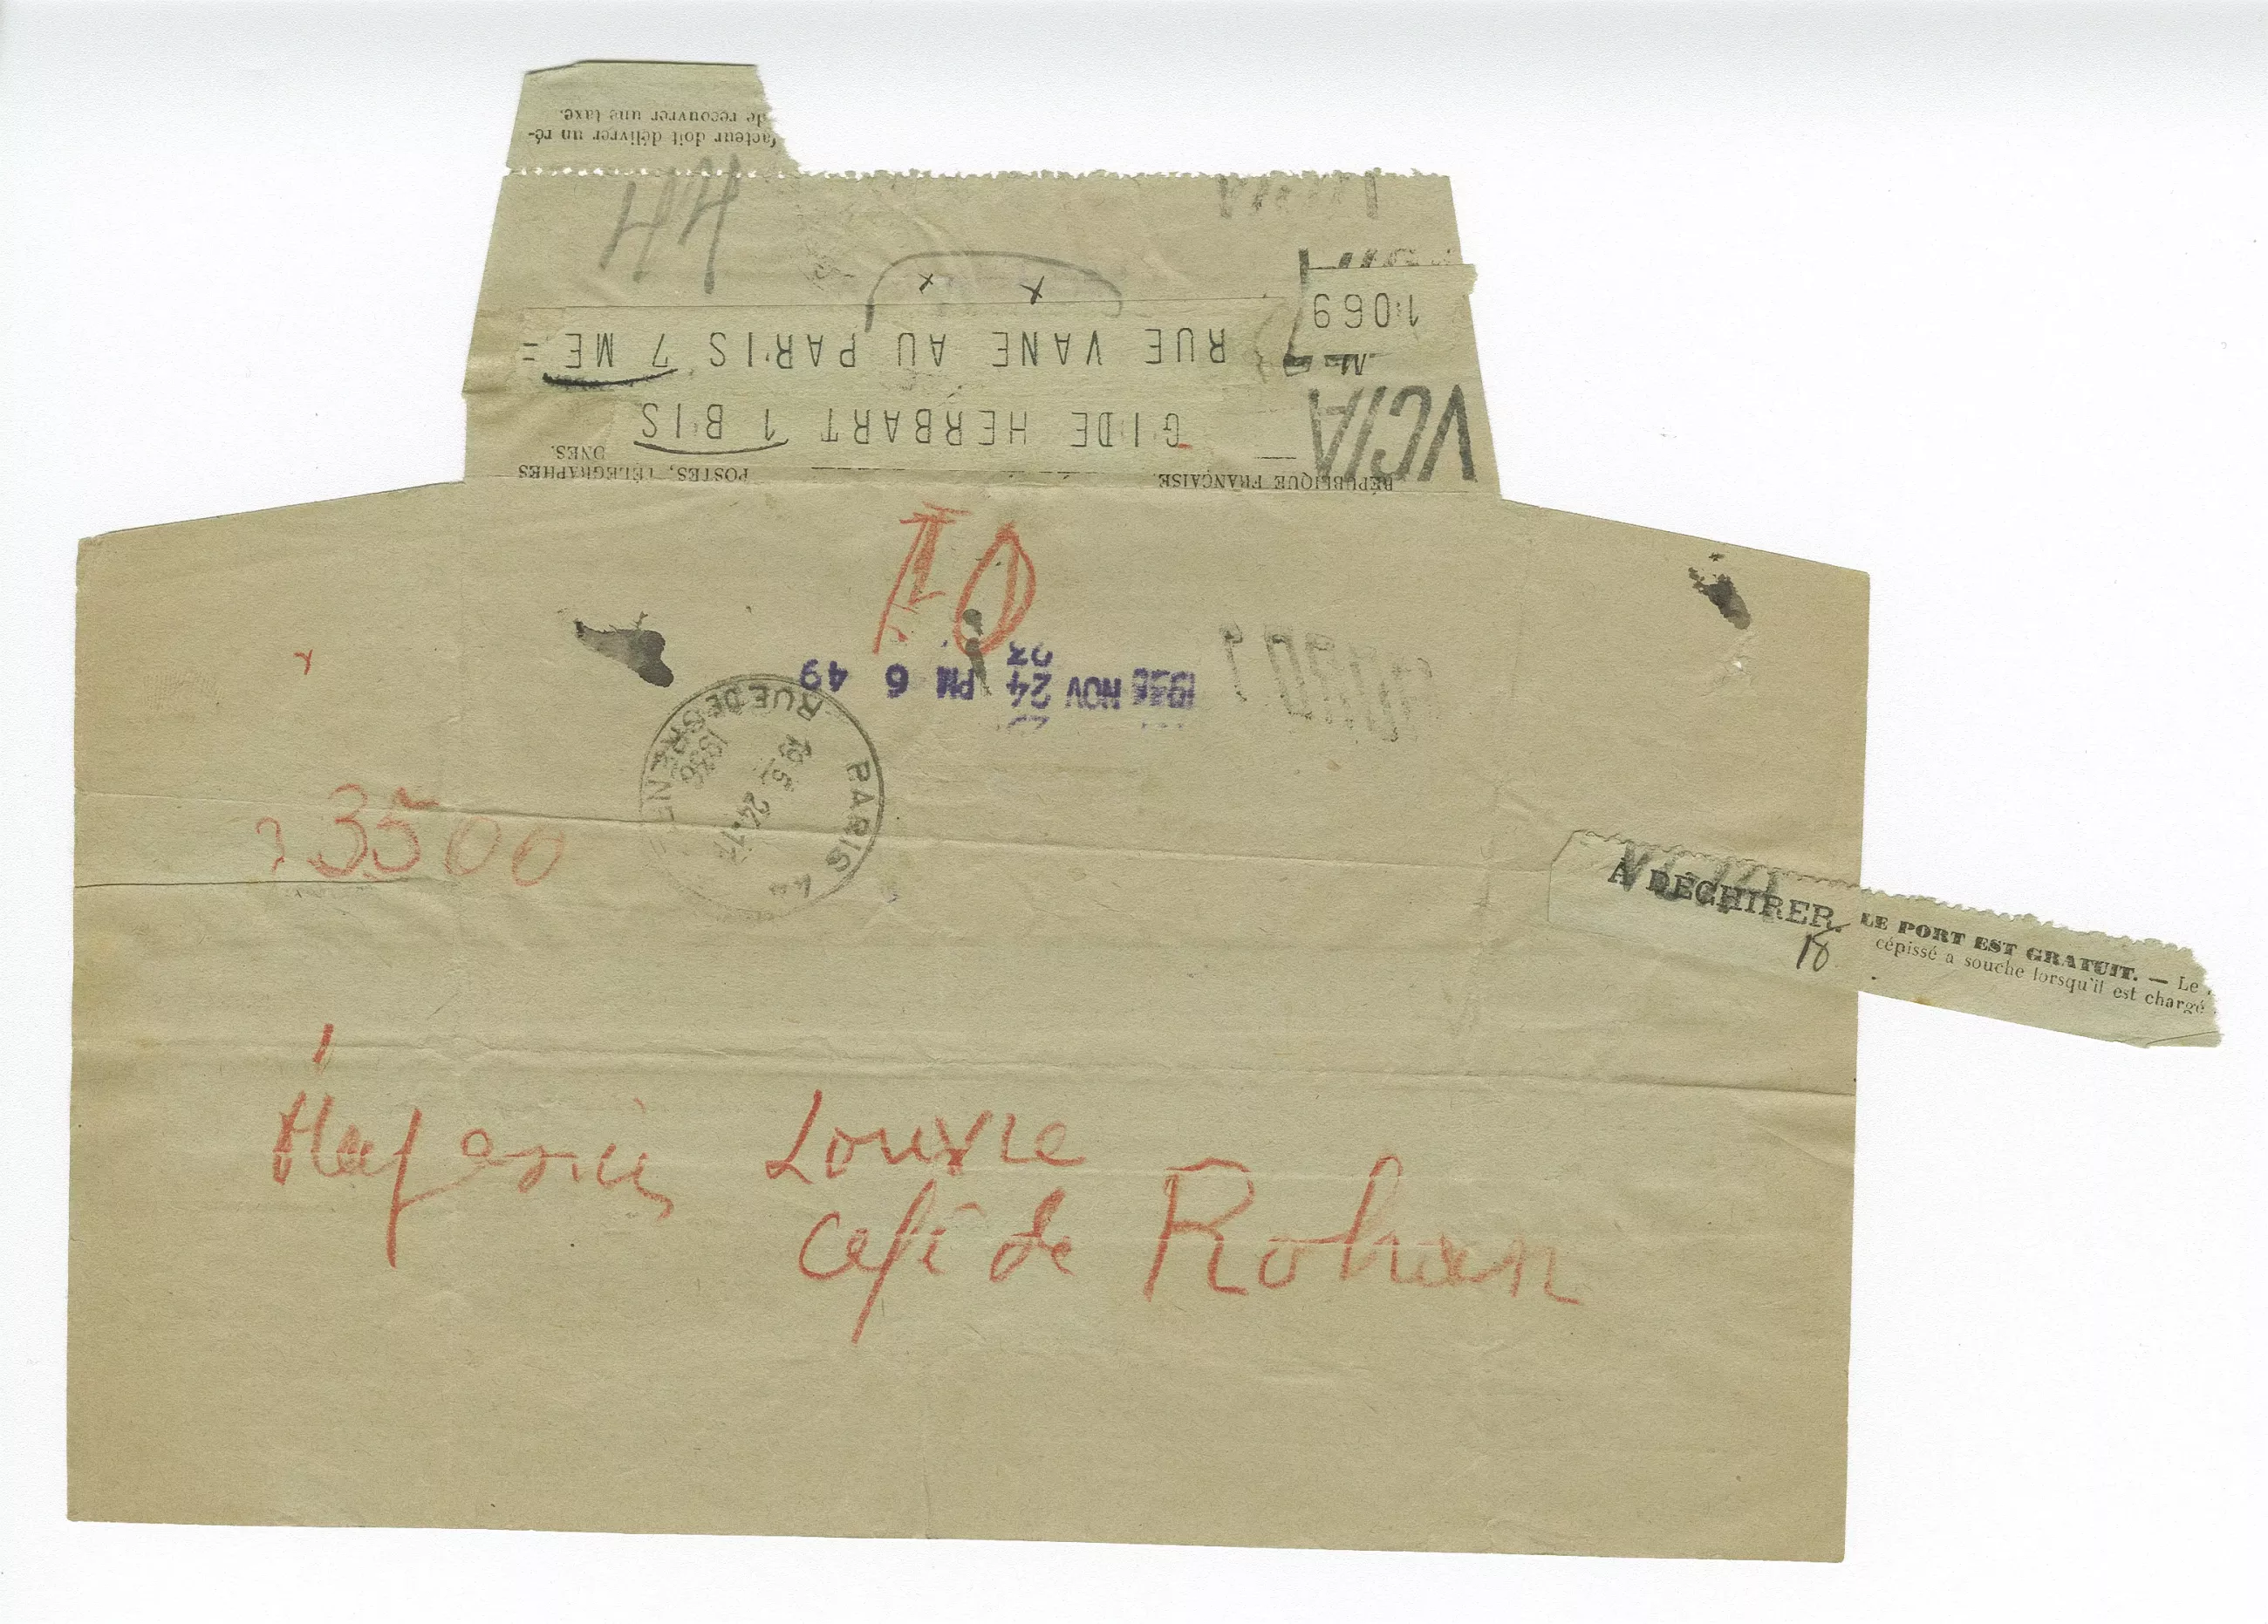 facteur doit délivrer un ré-
de recouvrer une taxe.
44
1069
RUE VANE AU PARIS 7 ME =
GIDE HERBART 1 BIS
VCIA
RÉPUBLIQUE FRANÇAISE.
POSTES, TÉLÉGRAPHES
ONES.
10
1936 NOV 24 PM 6 49
PARIS 44
RUE DE GRENELLE
1936
3500
A DÉCHIRER.
LE PORT EST GRATUIT. — Le
cépissé a souche lorsqu'il est chargé
18
Magasin Louvre
Café de Rohan